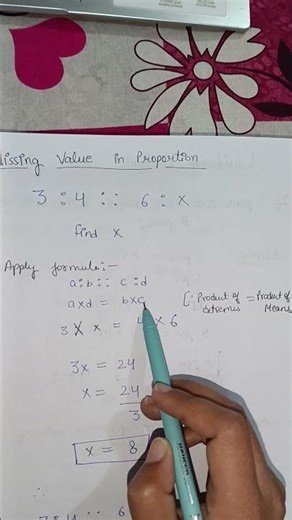 Missing Value in Proportion
3 : 4 :: 6 : x
find x
Apply formula:-
a:b :: c:d
a×d = b×c [∵ Product of Extremes = Product of Means
3 × x = 4 × 6
3x = 24
x = 24
3
x = 8
∴
6